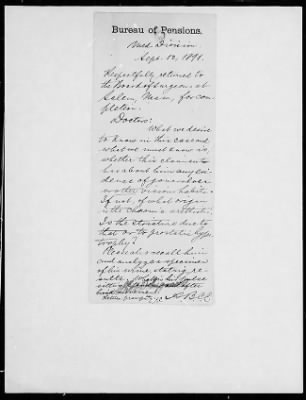 Bureau of Pensions.
Med. Division
Sept. 12, 1891.
Respectfully returned to
the Board of Surgeons at
Salem, Mass., for com-
pletion.
Doctors:
What we desire
to know in this case and
what we must know is,
whether this claimant
has about him any evi-
dence of gonorrhoea
or other vicious habits.
If not, of what origin
is the urethritis.
Is the stricture due to
that or to prostatic hyper-
trophy?
Please also recall him
and analyze a specimen
of his urine, stating re-
sults. his pulse
sitting after